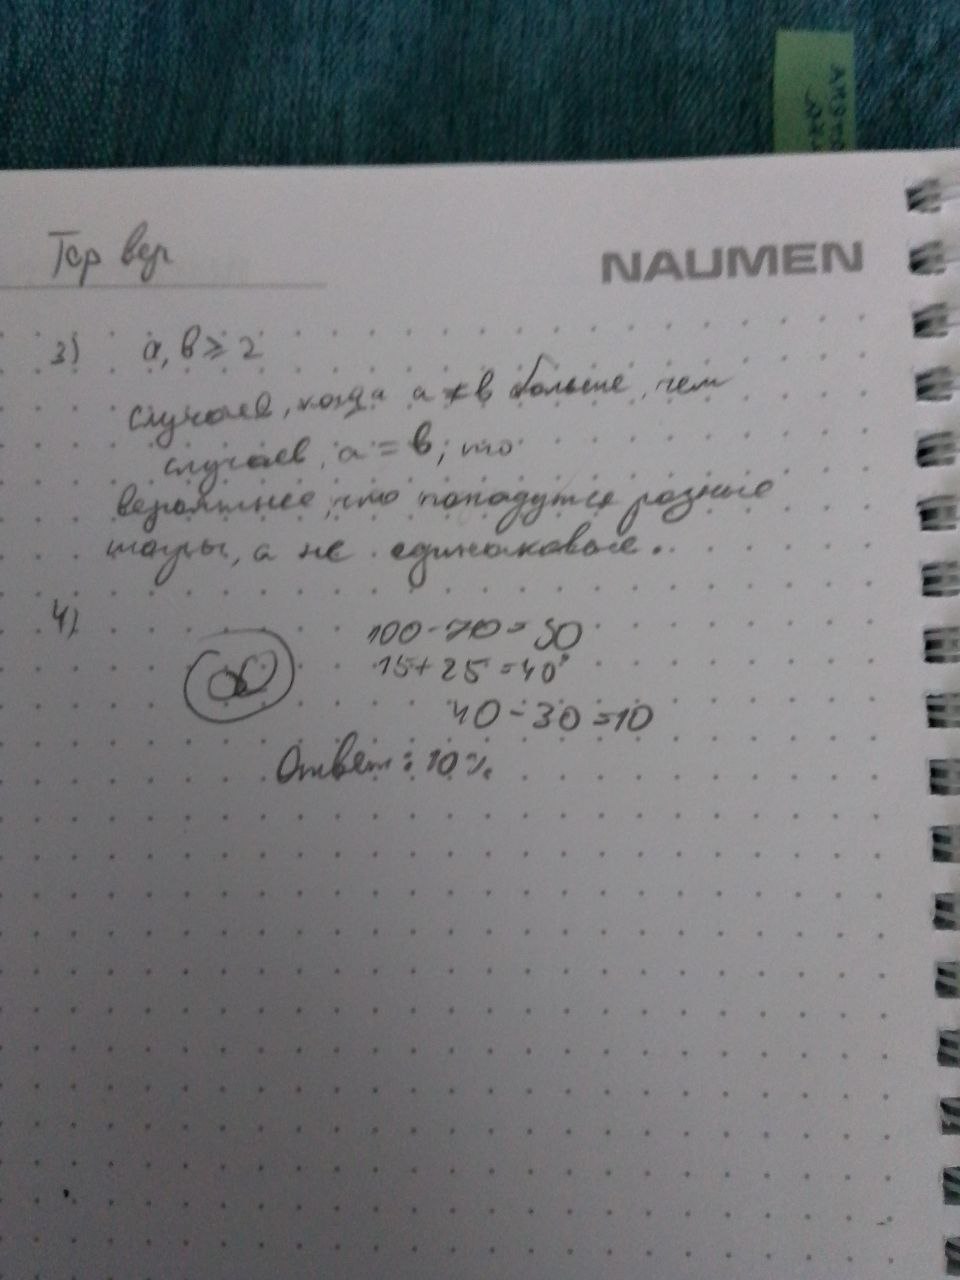 Тер вер
NAUMEN
3) a, b ≥ 2
Случаев, когда a ≠ b больше, чем
случаев, a = b, то
вероятнее, что попадутся разные
шары, а не одинаковые.
4)
100-70=30
15+25=40
40-30=10
Ответ: 10%